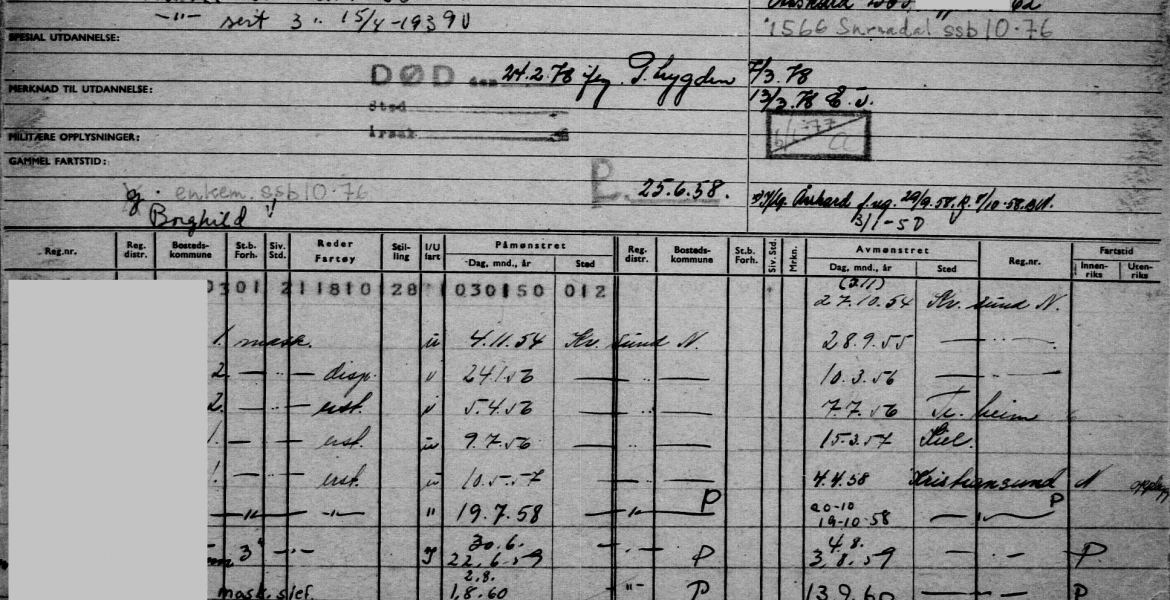 -"- sert 3 " 15/4-1939
1566 Surnadal ssb 10.76
SPESIAL UTDANNELSE:
DØD den 24.2.78 7/3.78
MERKNAD TIL UTDANNELSE:
Sted 13/3.78
MILITÆRE OPPLYSNINGER: årsak
GAMMEL FARTSTID:
g. enkem. ssb 10.76 P. 25.6.58.
Borghild
3/1-50
Reg.nr. Reg. distr. Bosteds- kommune St.b. Forh. Siv. Std. Reder Fartøy Stil- ling I/U fart Påmønstret Reg. distr. Bosteds- kommune St.b. Forh. Siv. Std. Mrkn. Avmønstret Reg.nr. Fartstid
Dag, mnd., år Sted Dag, mnd., år Sted Innen- riks Uten- riks
0301 2 11810 28 030150 012 27.10.54 Kr. sund N.
1. mask. u 4.11.54 Kr. sund N. 28.9.55 — " —
2. — " — disp. 24.1.56 — " — 10.3.56 — " —
2. — " — erst. 5.4.56 — " — 7.7.56 Tr. heim
1. — " — erst. u 9.7.56 — " — 15.3.57 Kiel.
1. — " — erst. u 10.5.57 — " — 4.4.58 Kristiansund N
— " — — " — " 19.7.58 — " — P 20-10 19-10.58 — " — P
3 — " — 30.6. 22.6.59 — " — P 4.8. 3.8.59 — " — P
mask. sjef. 2.8. 1.8.60 " - P 13.9.60 — " — P